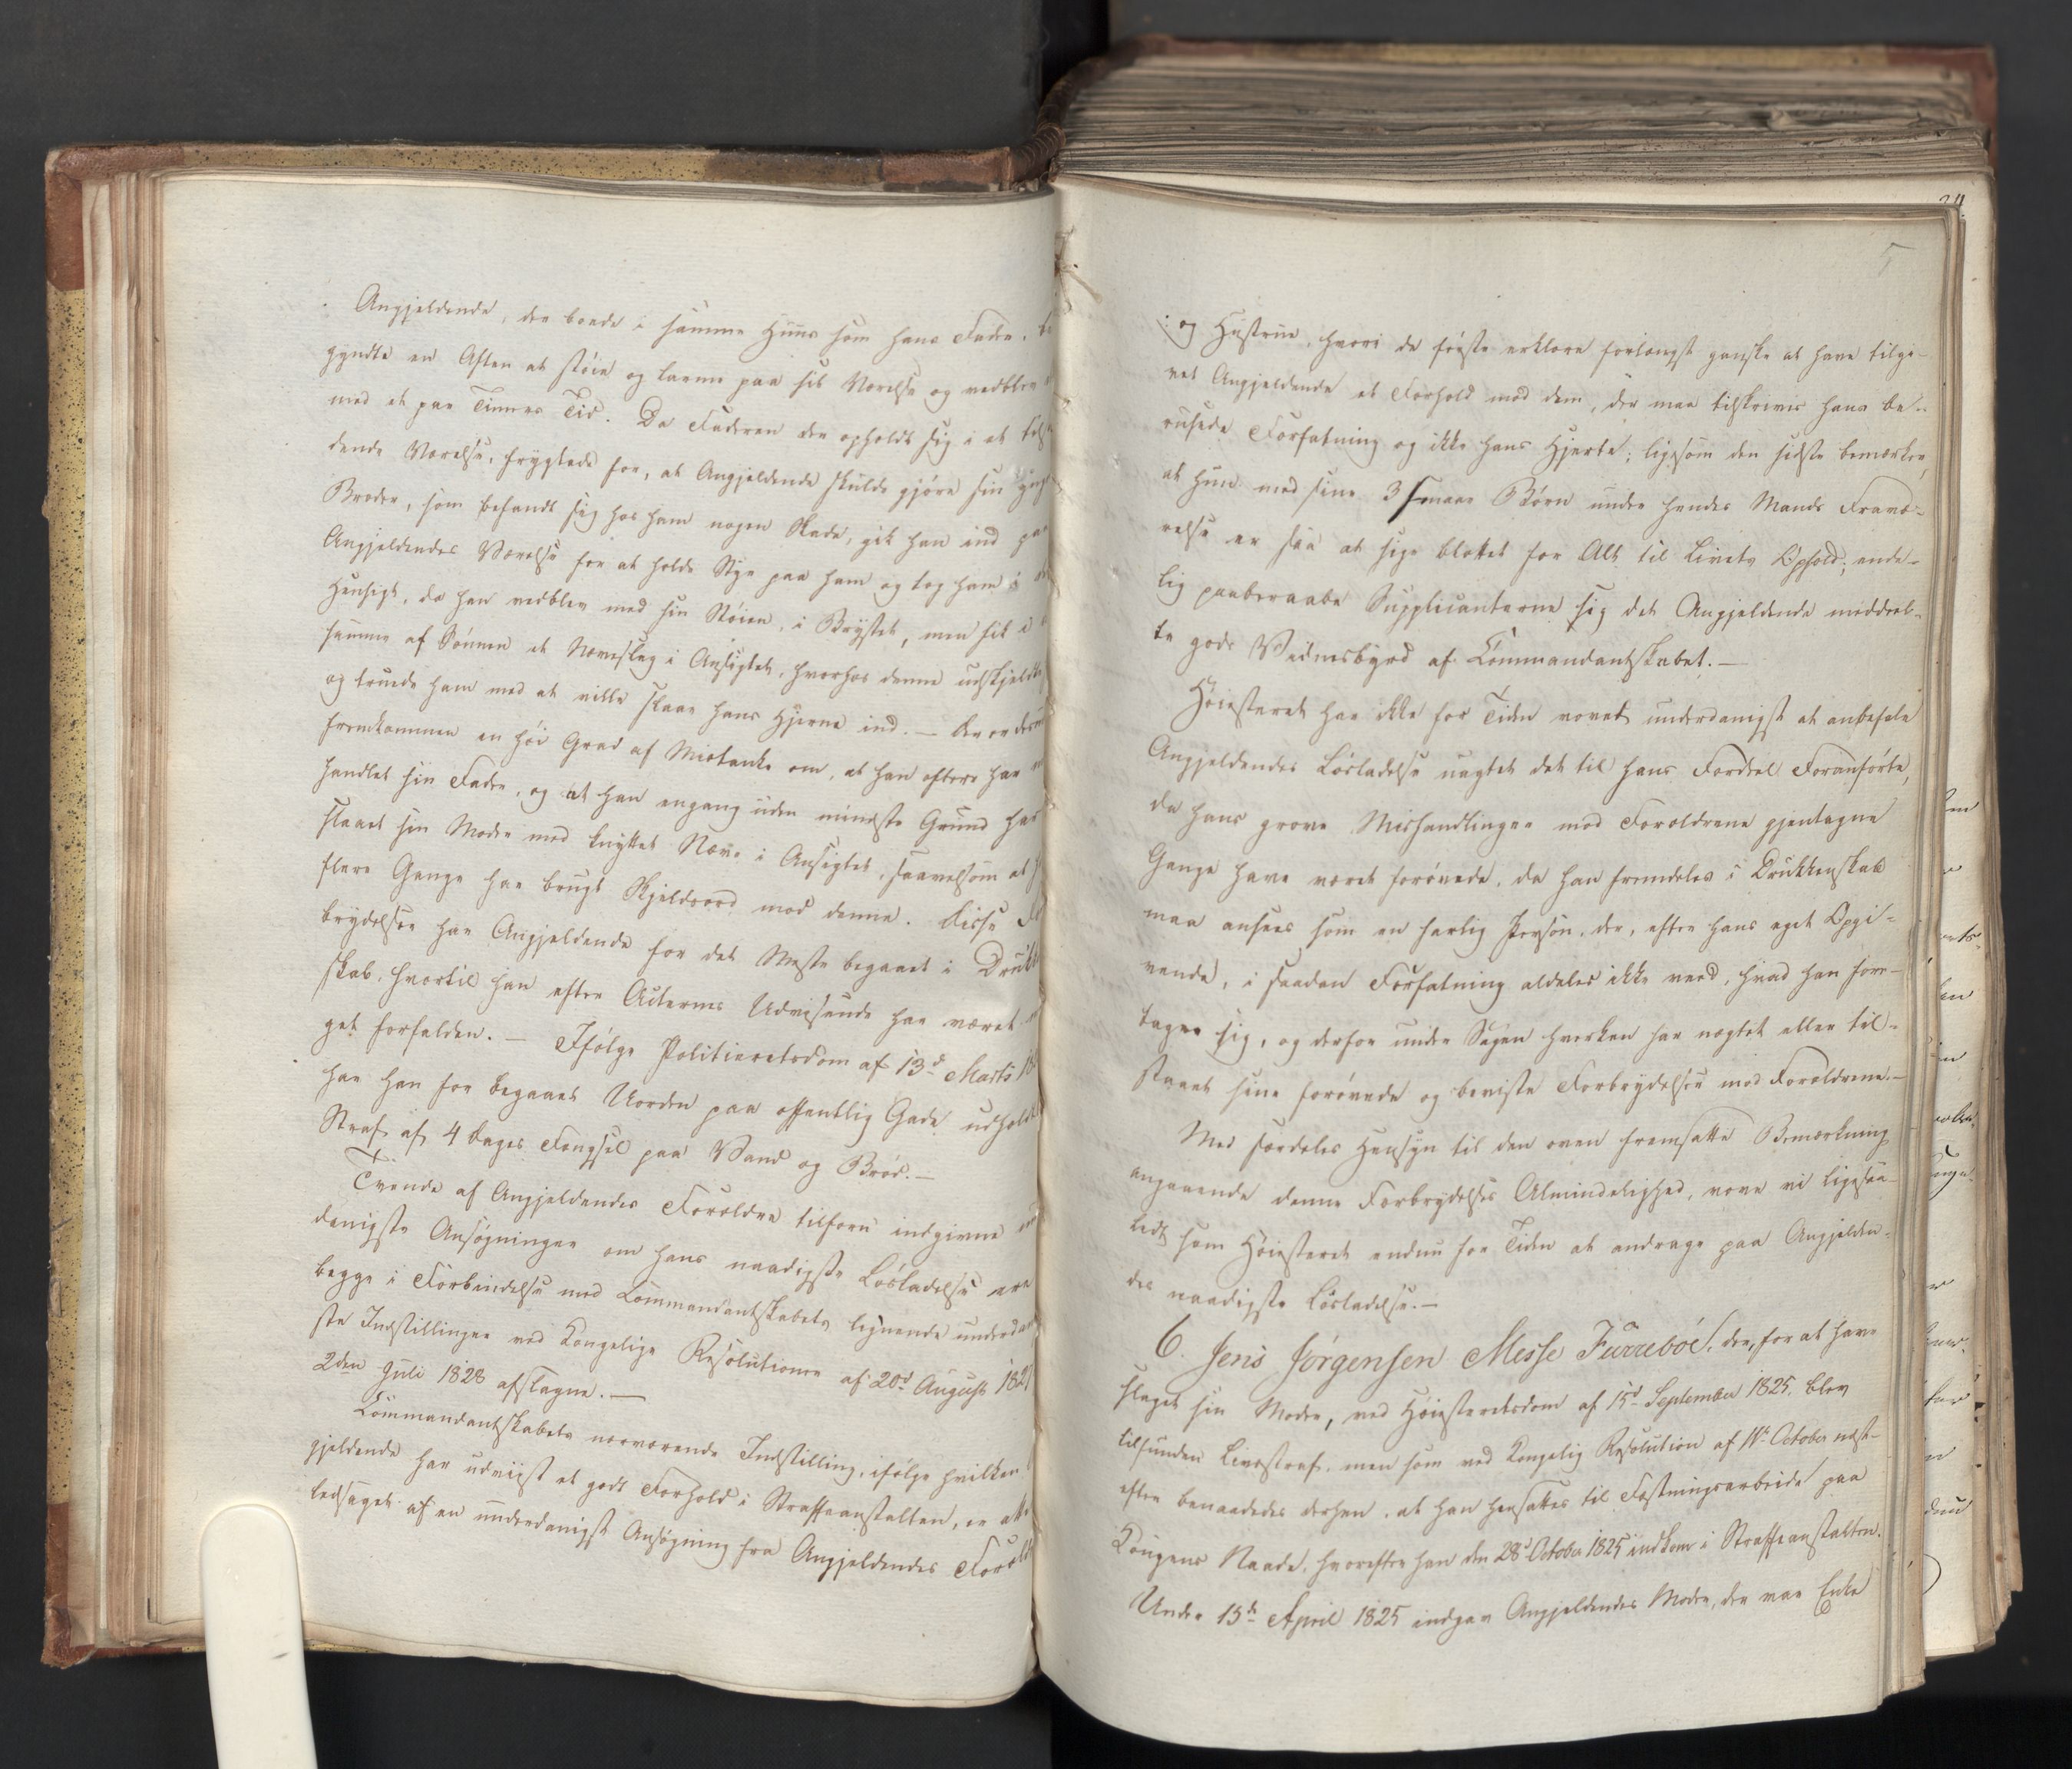 Angjeldende, der boede i samme Huus som hans Fader, be
gyndte en Aften at støie og larme paa sit Værelse og vedblev
med et par Timers Tid. Da Faderen der opholdt sig i et tilstø
dende Værelse, frygtede for, at Angjeldende skulde gjøre sin
Broder, som befandt sig hos ham nogen Skade, gik han ind paa
Angjeldendes Værelse for at holde Styr paa ham og tog ham i
Hensigt, da han vedblev med sin Støien, i Brystet, men fik i
samme af Sønnen et Næveslag i Ansigtet, hvorhos denne udskjeldte
og truede ham med at ville slaae hans Hjerne ind. — Der er
fremkommen en høi Grad af Mistanke om, at han oftere har
handlet sin Fader, og at han engang uden mindste Grund har
slaaet sin Moder med knyttet Næve i Ansigtet, saavelsom at
flere Gange har brugt Skjeldsord mod denne. Disse
brydelser har Angjeldende for det Meste begaaet i Drukk
skab, hvortil han efter Acternes Udvisende har været
get forfalden. — Ifølge Politieretsdom af 13d Marts 18
har han for begaaet Uorden paa offentlig Gade udholdt
Straf af 4 Dages Fengsel paa Vand og Brød. —
Tvende af Angjeldendes Forældre tilforn indgivne
danigste Ansøgninger om hans naadigste Løsladelse ere
begge i Forbindelse med Commandantskabets lignende underda
ste Indstillinger ved Kongelige Resolutioner af 20d August 182
2den Juli 1828 afslagne. —
Commandantskabets nærværende Indstilling, ifølge hvilken
gjeldende har udviist et godt Forhold i Straffeanstalten, er
ledsaget af en underdanigst Ansøgning fra Angjeldendes Foræld
5
og Hustrue, hvori de første erklære forlængst ganske at have tilgi-
vet Angjeldende et Forhold mod dem, der maa tilskrives hans be-
rusede Forfatning og ikke hans Hjerte; ligesom den sidste bemærker,
at hun med sine 3 smaae Børn under hendes Mands Fravæ-
relse er saa at sige blottet for Alt til Livets Ophold; ende-
lig paaberaabe Supplicanterne sig det Angjeldende meddeel-
te gode Vidnesbyrd af Commandantskabet. —
Høiesteret har ikke for Tiden vovet underdanigst at anbefale
Angjeldendes Løsladelse uagtet det til hans Fordeel Foranførte,
da hans grove Mishandlinger mod Forældrene gjentagne
Gange have været forøvede, da han fremdeles i Drukkenskab
maa ansees som en farlig Person, der, efter hans eget Opgi-
vende, i saadan Forfatning aldeles ikke veed, hvad han fore-
tager sig, og derfor under Sagen hverken har negtet eller til-
staaet sine forøvede og beviste Forbrydelser mod Forældrene. —
Med særdeles Hensyn til den oven fremsatte Bemærkning
angaaende denne Forbrydelses Almindelighed, vove vi ligesaa
lidt som Høiesteret endnu for Tiden at andrage paa Angjelden-
des naadigste Løsladelse. —
6. Jens Jørgensen Messe Furrebøe, der, for at have
slaget sin Moder, ved Høiesteretsdom af 15d September 1825, blev
tilfunden Livsstraf, men som ved Kongelig Resolution af 11te October næst-
efter benaadedes derhen, at han hensattes til Fæstningsarbeide paa
Kongens Naade, hvorefter han den 28d October 1825 indkom i Straffeanstalten.
Under 15de April 1825 indgav Angjeldendes Moder, der var Enke